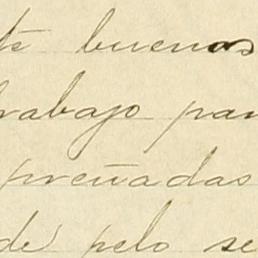 te buenos
trabajo par
preñadas
de pelo se